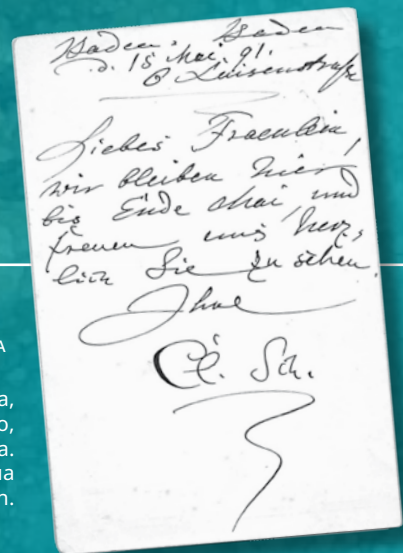 Baden-Baden
d. 15 Mai. 91.
6 Luisenstraße
Liebes Fraeulein,
wir bleiben hier
bis Ende Mai, und
freuen uns herz,
lich Sie zu sehen.
Ihre
Cl. Sch.
A
a,
o,
a.
ua
n.